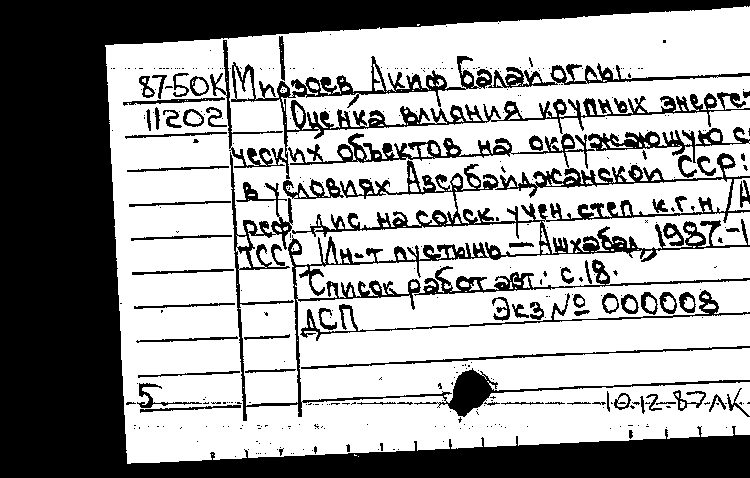 87-50К Мирзоев Акиф Балай оглы.
11202 Оценка влияния крупных энергети
ческих объектов на окружающую с
в условиях Азербайджанской ССР:
реф. дис. на соиск. учен. степ. к.г.н. / А
ТССР. Ин-т пустынь. — Ашхабад, 1987. - 1
Список работ авт.: с. 18.
ДСП Экз № 000008
5.
10.12.87 ЛК